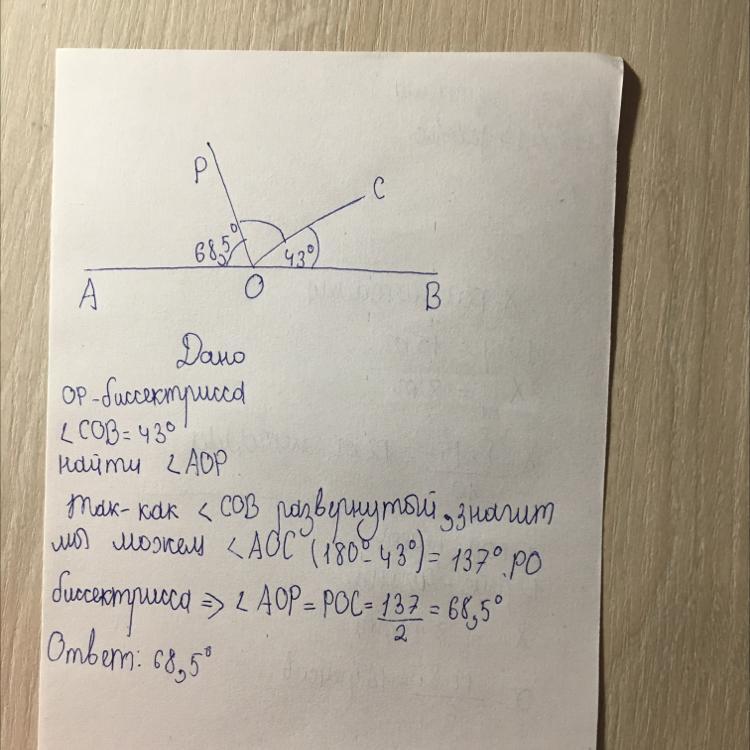 P
C
68,5°
43°
A
O
B
Дано
OP-биссектрисса
∠COB=43°
найти ∠AOP
так-как ∠COB развернутый, значит
мы можем ∠AOC (180°-43°)=137°. PO
биссектрисса => ∠AOP=POC=137/2=68,5°
Ответ: 68,5°